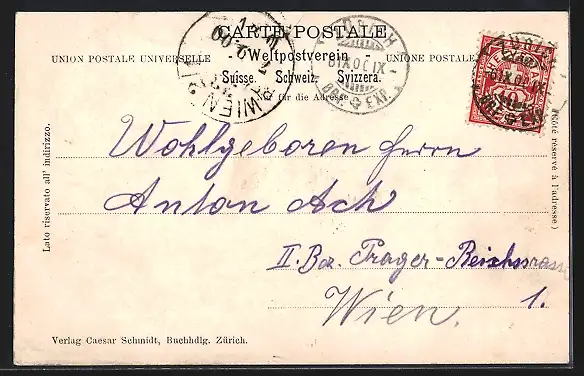 CARTE POSTALE
UNION POSTALE UNIVERSELLE Weltpostverein UNIONE POSTALE
Suisse. Schweiz. Svizzera.
für die Adresse
WIEN
BRF. EXP.
Lato riservato all' indirizzo.
(Côté réservé à l'adresse)
Wohlgeboren Herrn
Anton Ach
II. Bez. Prager-Reichsstrasse
Wien. 1.
Verlag Caesar Schmidt, Buchhdlg. Zürich.